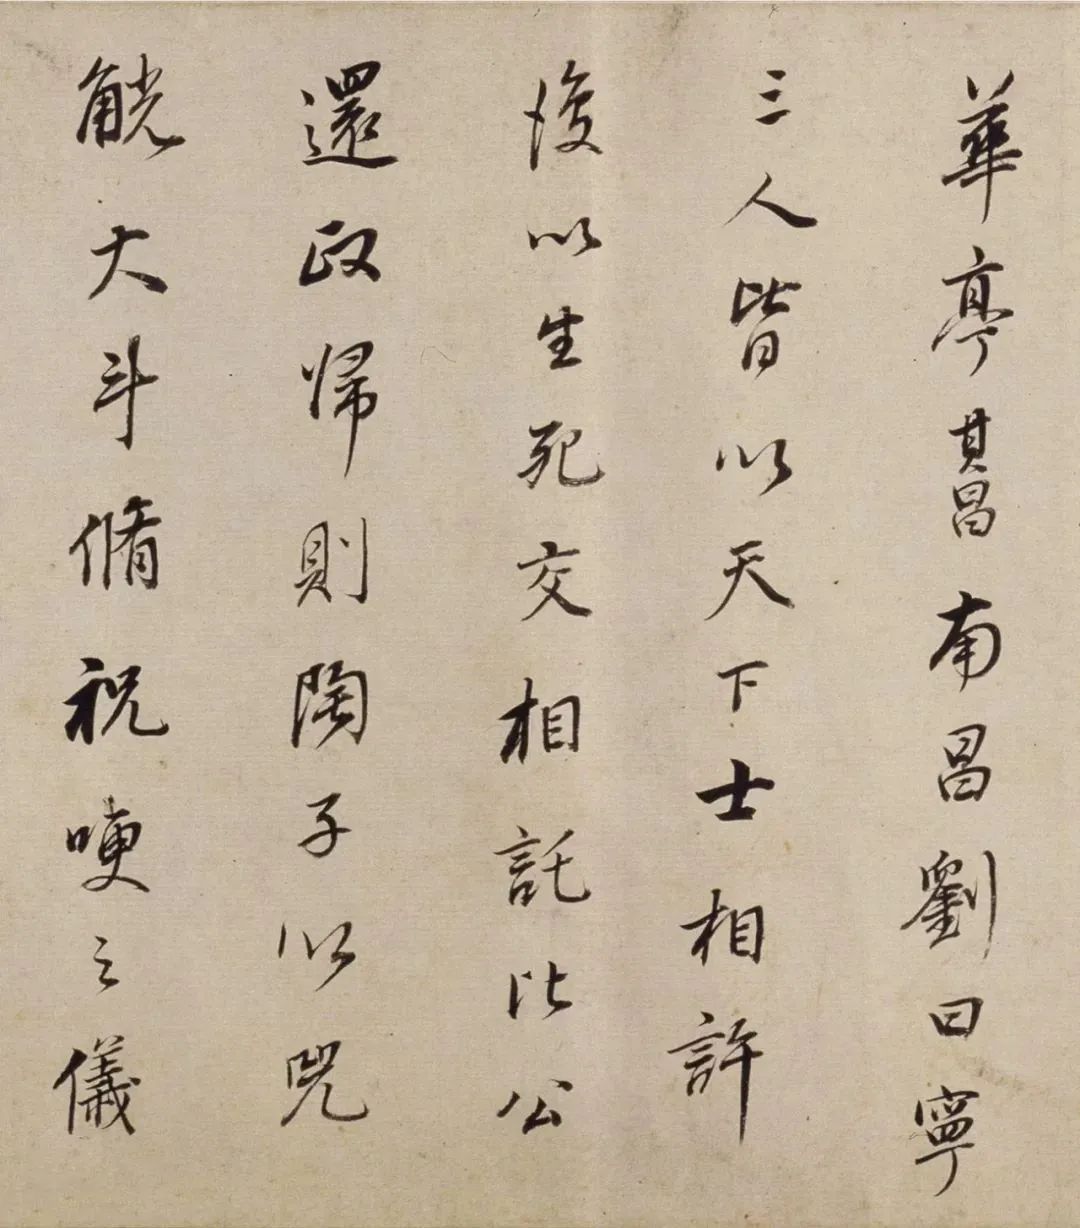 華亭其昌南昌劉曰寧
三人皆以天下士相許
復以生死交相託比公
還政歸則陶子以兕
觥大斗脩祝哽之儀